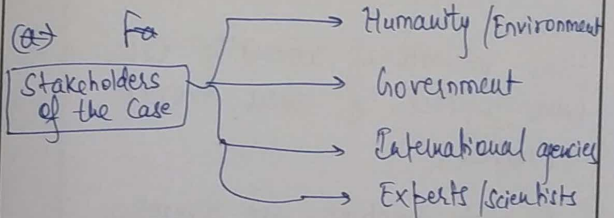 (a)
Stakeholders
of the Case
Humanity / Environment
Government
International agencies
Experts / Scientists